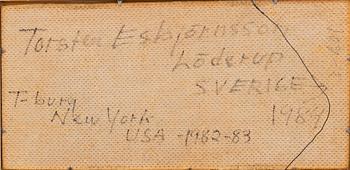 Torsten Esbjörnsson
Löderup
SVERIGE
1984
T-burg
New York
USA -1982-83